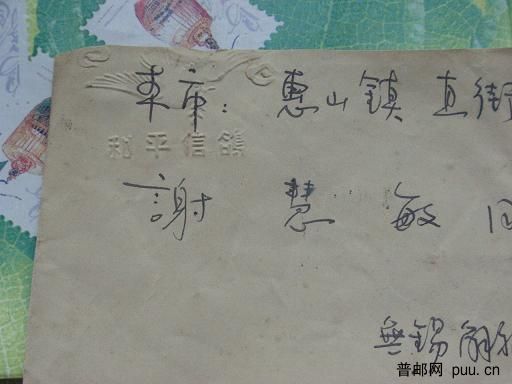 本市：惠山鎮 直街
和平信鴿
謝 慧 敏
無錫 解
普邮网 puu.com